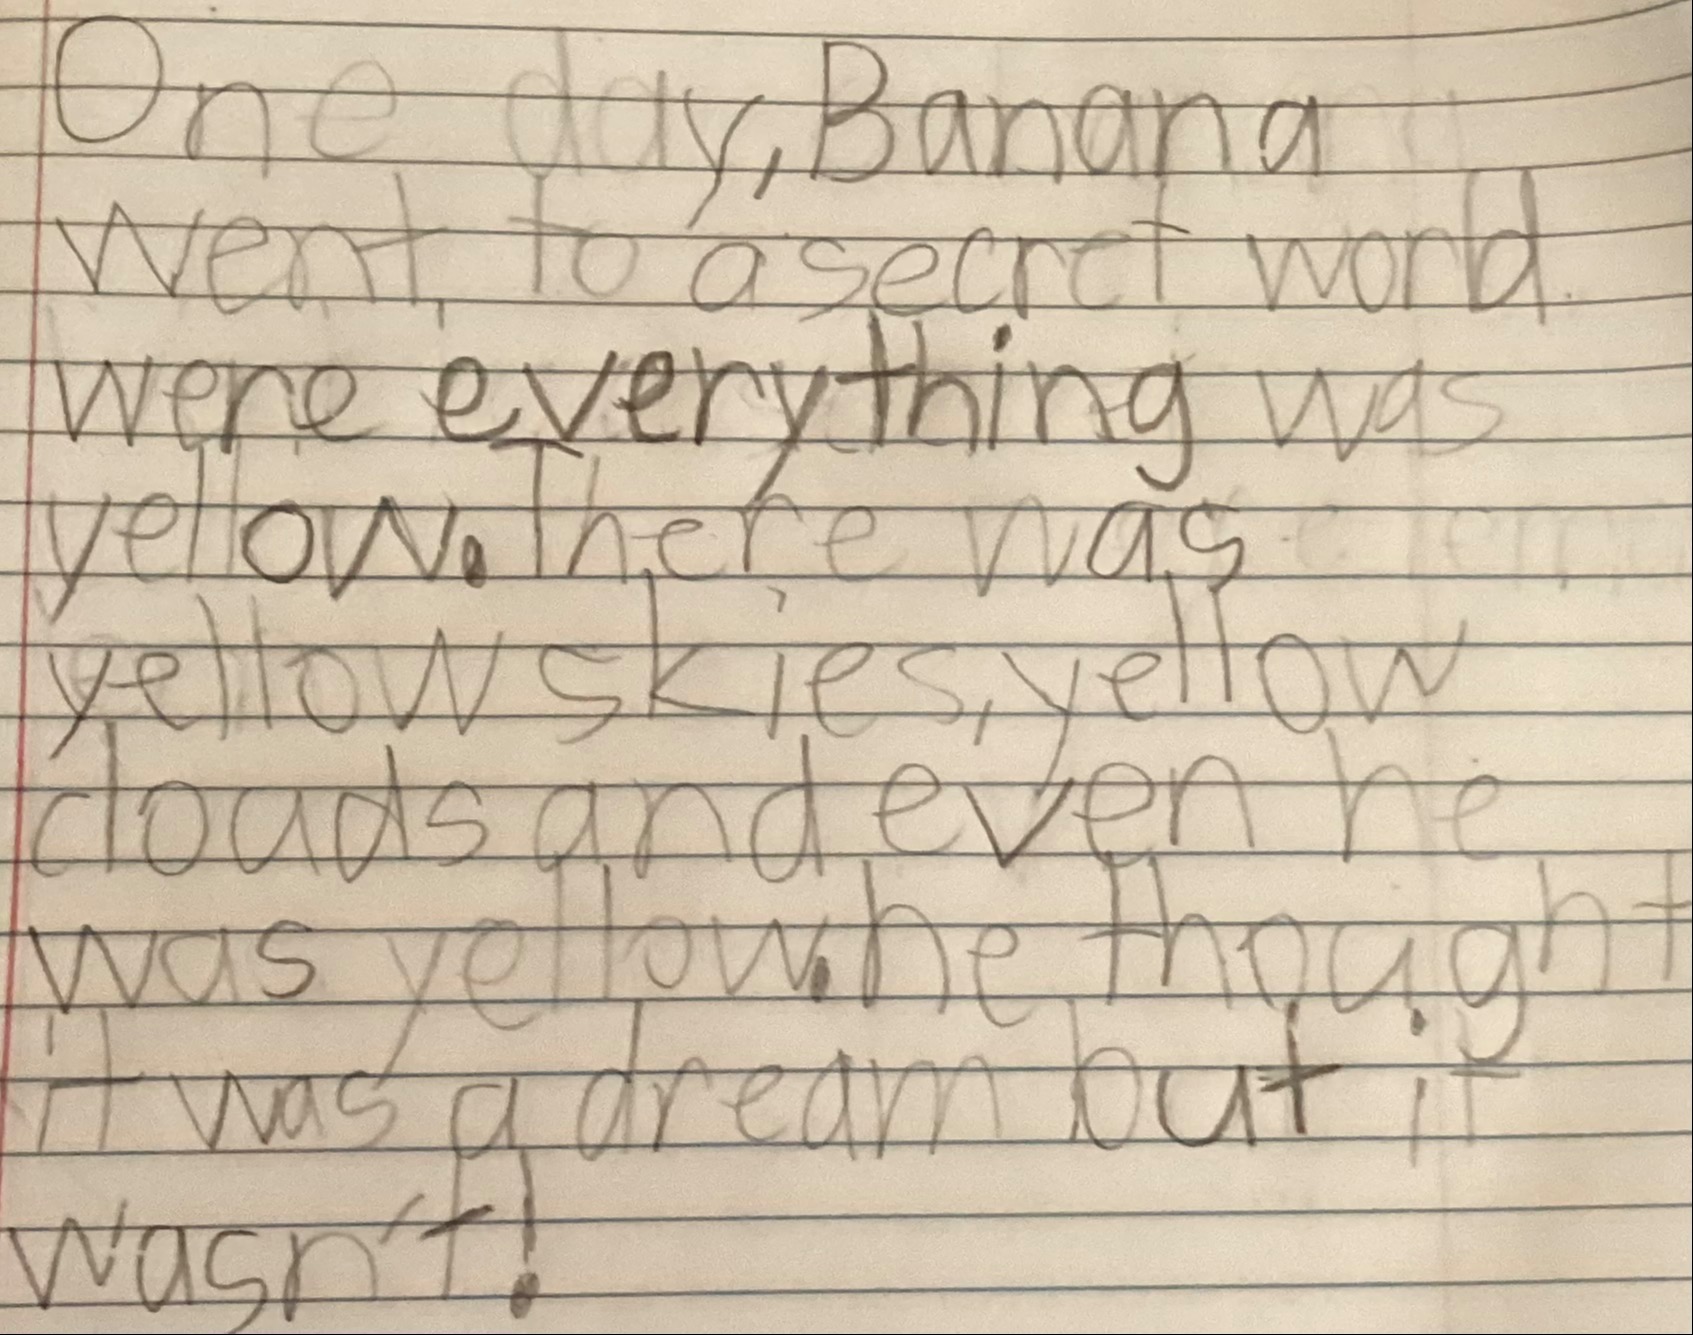 One day, Banana
went to a secret world
were everything was
yellow. There was
yellow skies, yellow
clouds and even he
was yellow. he thought
it was a dream but it
wasn't!